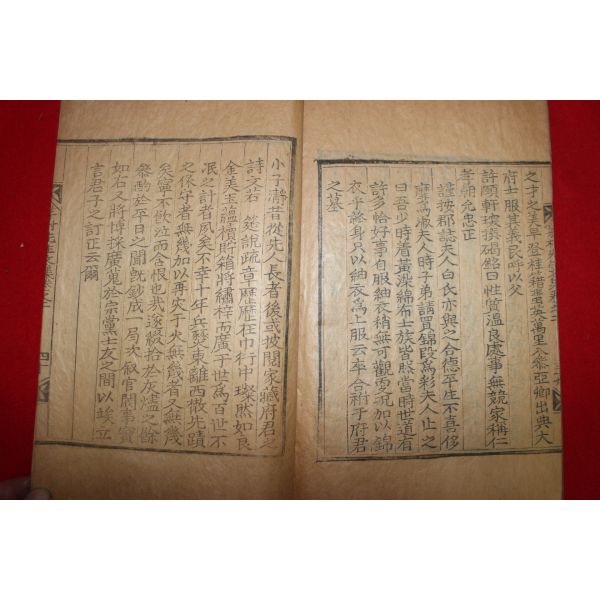 之才之美早登桂籍蜚英萬里入參亞卿出典大
府士服其義民呼以父
許頤軒琰撰碣銘曰性質溫良處事無競家稱仁
孝朝允忠正
謹按郡誌夫人白氏亦與之合德平生不喜侈
靡爲淑夫人時子弟請買錦段爲彩夫人止之
曰吾少時着黃染綿布士族皆然當時世道有
許多恰好事自服紬衣稍無可觀更況加以錦
衣乎終身只以紬衣爲上服云卒合祔于府君
之墓
小子濟昔從先人長者後或披閱家藏府君之
詩文若 筵說疏章歷歷在巾衍中璨然如良
金美玉蘊櫝貯箱將繡梓而廣于世爲百世不
泯之計者夙矣不幸十年兵燹東離西散先蹟
之保守者無幾加以再灾于火無幾者又無幾
矣寧不飮泣而含恨也我逐綴拾於灰燼之餘
叅酌於平日之聞旣鈔成一局次叙官閥事實
如右又將博採廣蒐於宗黨士友之間以竢立
言君子之訂正云爾
四